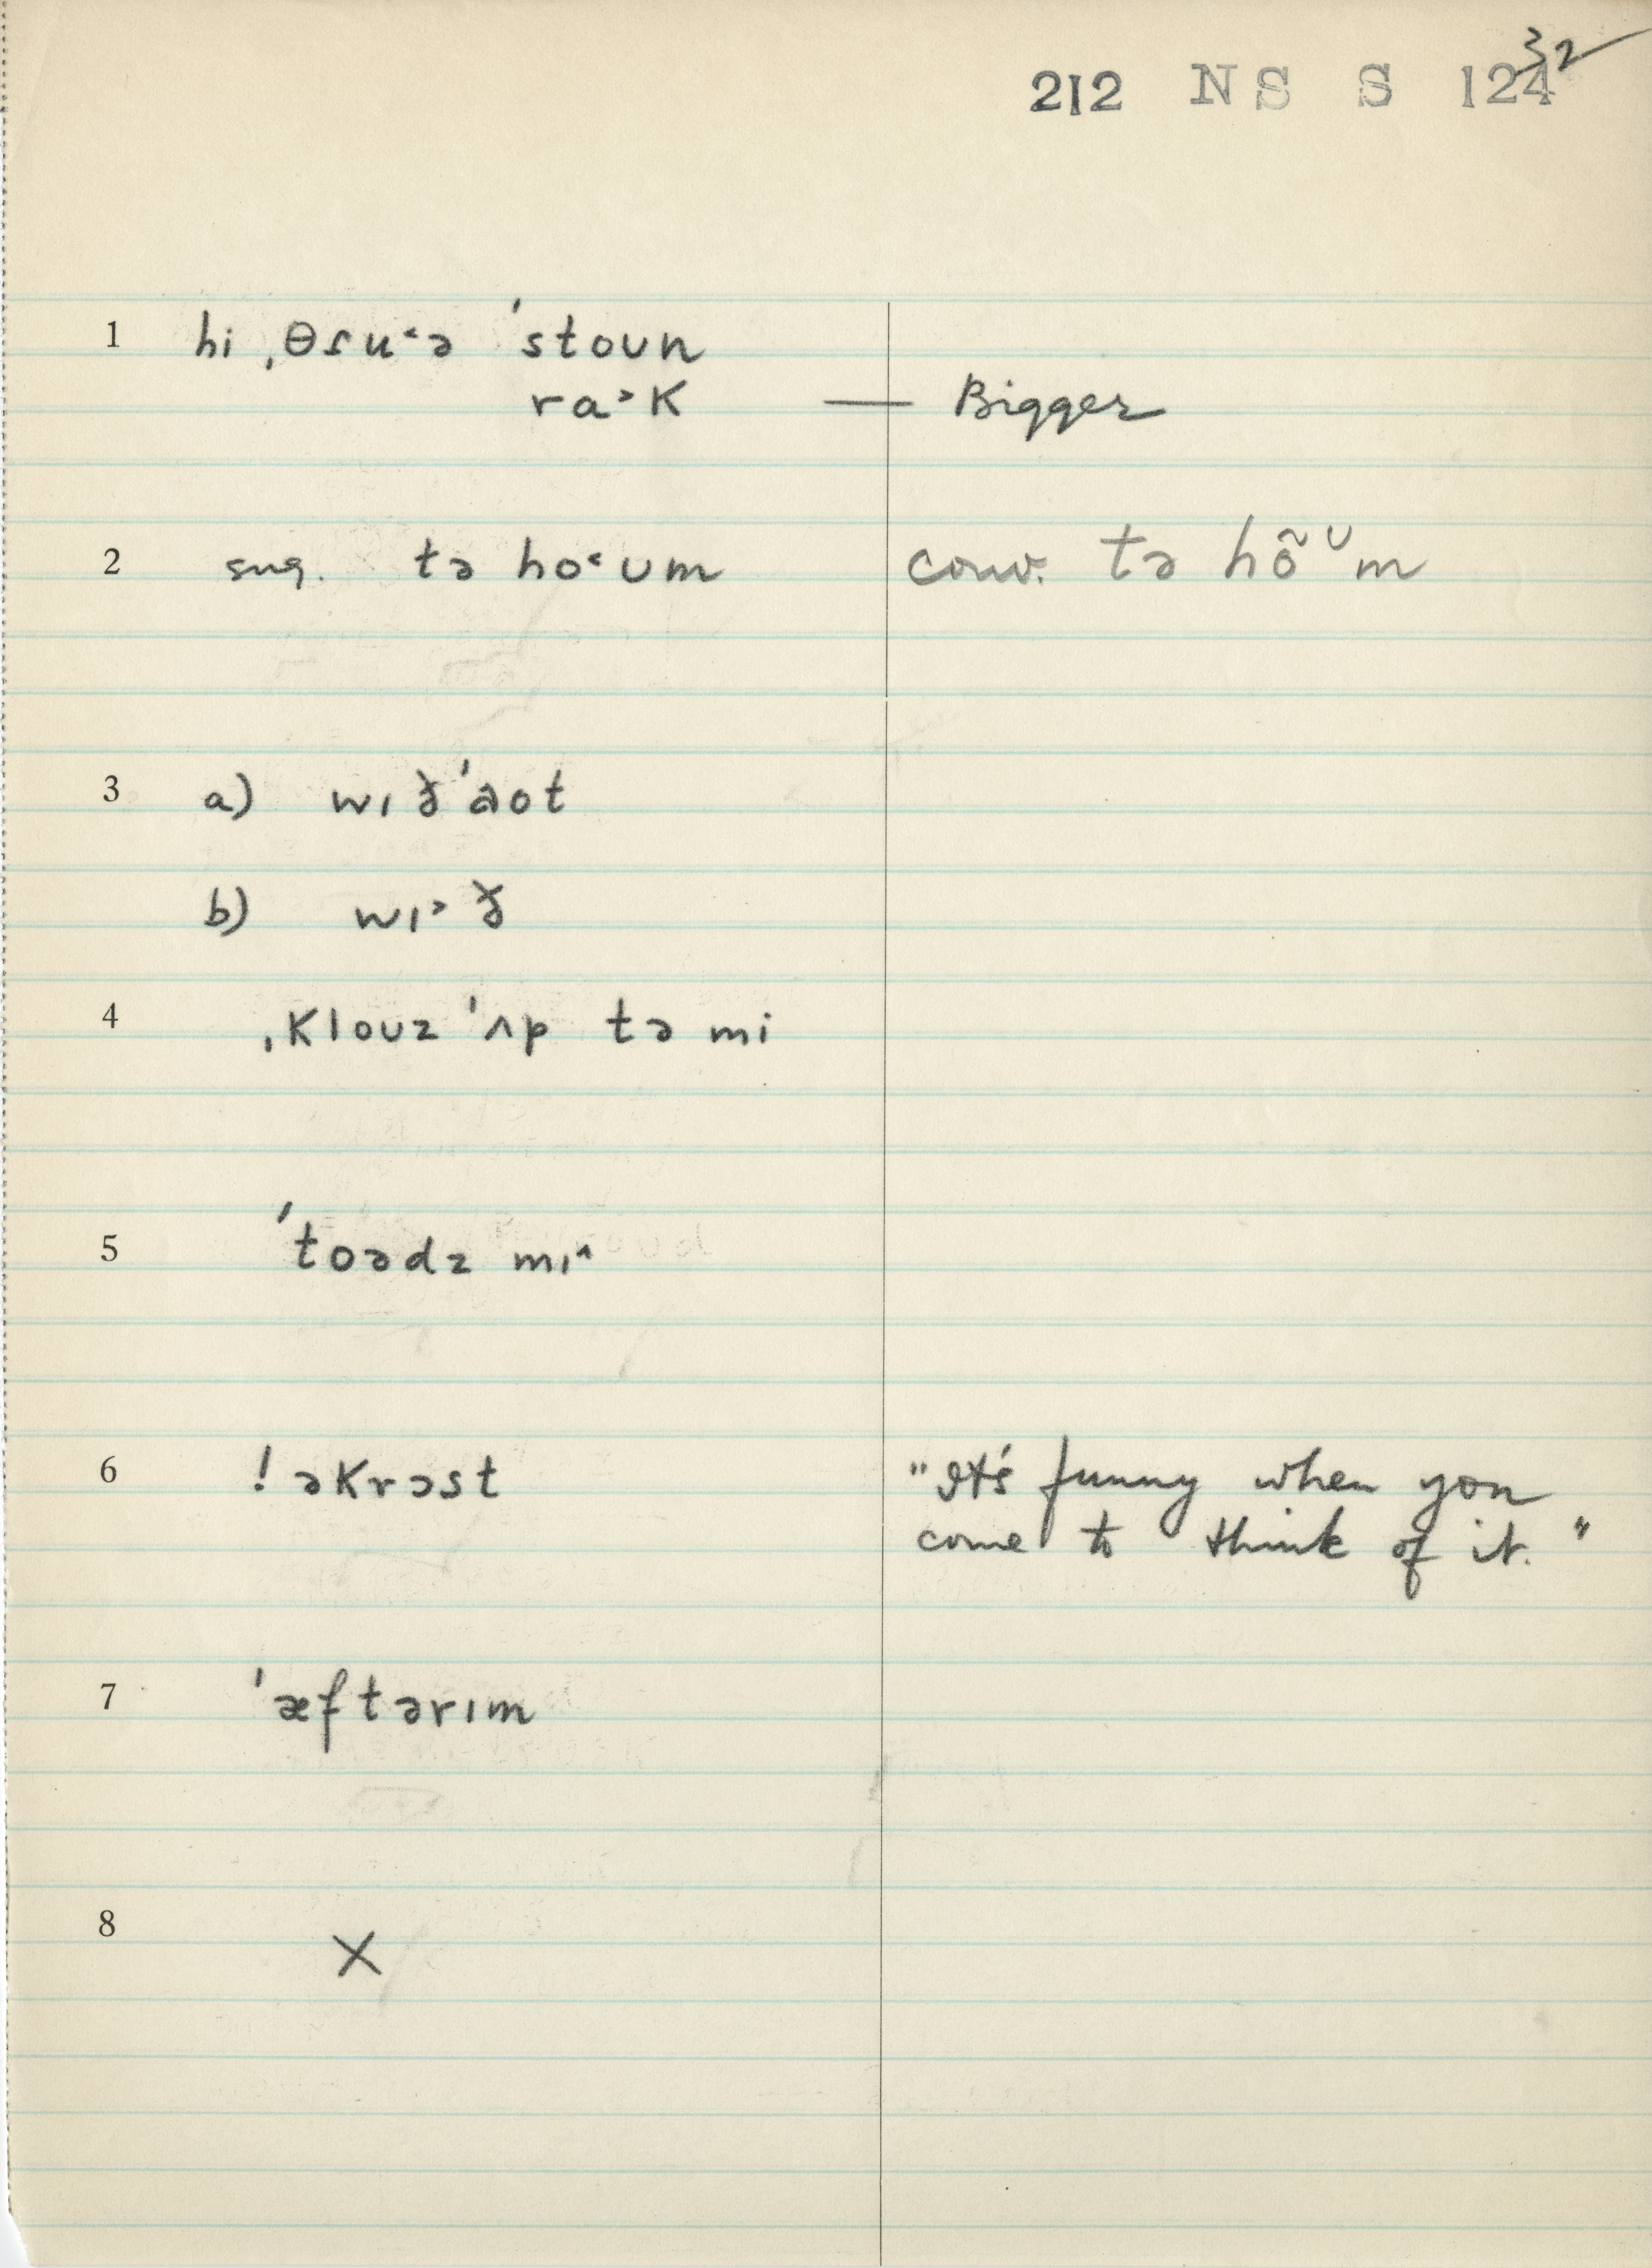 212 NS S 124
32
1 hi ˌθɾu˂ə ˈstoun
ra˃k — Bigger
2 sug. tə ho˂ʊm conv. tə hõᶷm
3 a) wɪðˈaot
b) wɪ˃ð
4 ˌklouz ˈʌp tə mi
5 ˈtoədz mɪ^
6 ! əkrɔst "It's funny when you
come to think of it."
7 ˈæftərɪm
8 X